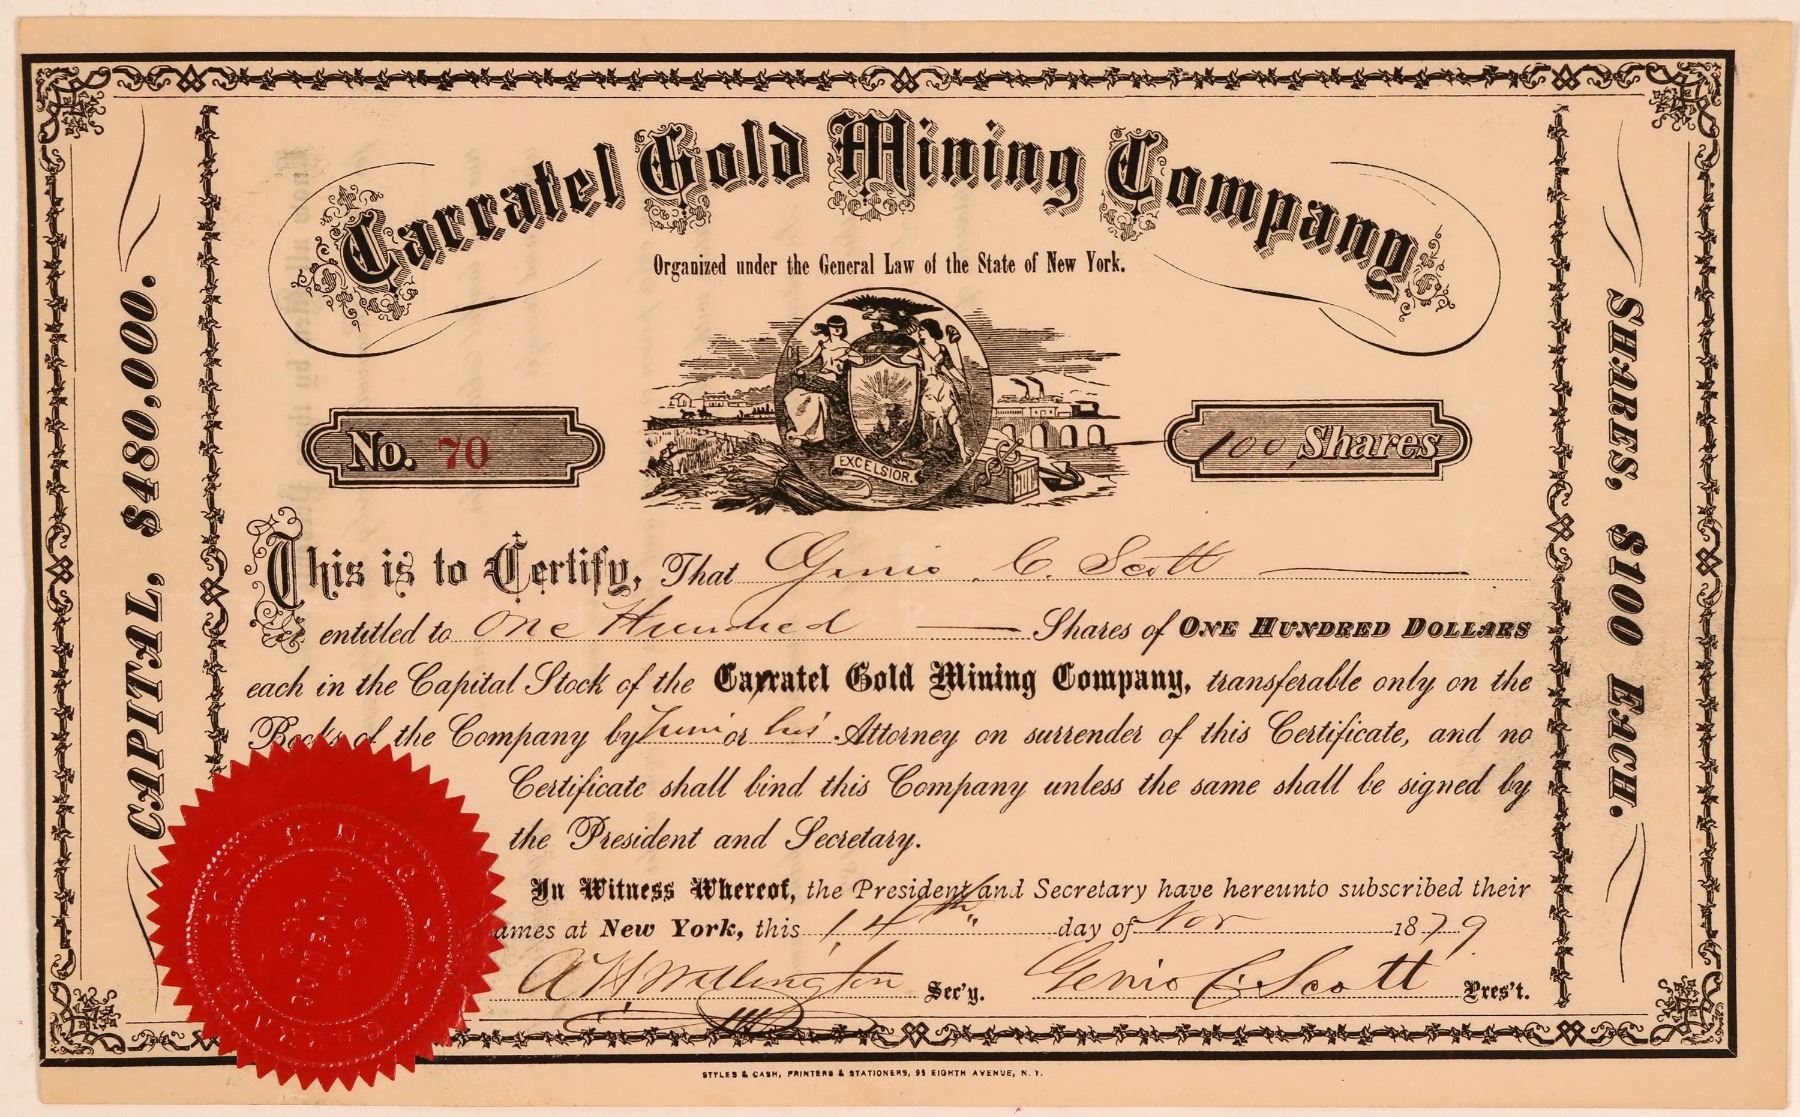 Carratel Gold Mining Company
Organized under the General Law of the State of New York.
EXCELSIOR.
No. 70
100 Shares
CAPITAL, $480,000.
SHARES, $100 EACH.
This is to Certify, That Genio C. Scott
entitled to One Hundred Shares of ONE HUNDRED DOLLARS
each in the Capital Stock of the Carratel Gold Mining Company, transferable only on the
Books of the Company by him or his Attorney on surrender of this Certificate, and no
Certificate shall bind this Company unless the same shall be signed by
the President and Secretary.
In Witness Whereof, the President and Secretary have hereunto subscribed their
ames at New York, this 14th day of Nov 1879
A H Wellington Sec'y. Genio C. Scott Pres't.
STYLES & CASH, PRINTERS & STATIONERS, 95 EIGHTH AVENUE, N. Y.